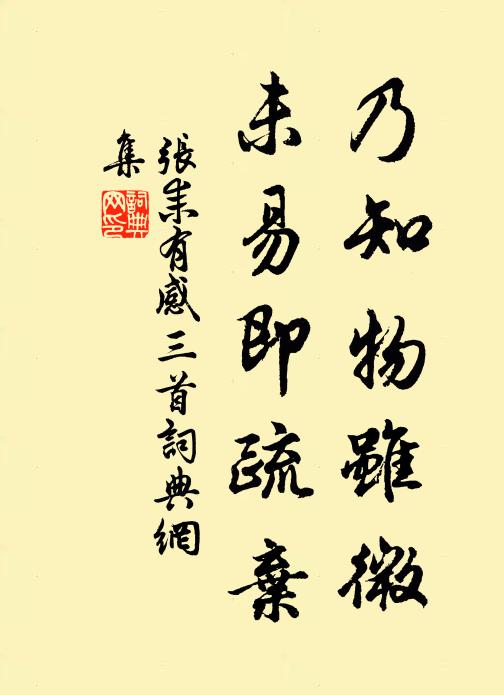 乃知物雖微
未易即疏棄
張耒有感三首詞典網
集
詞典網印